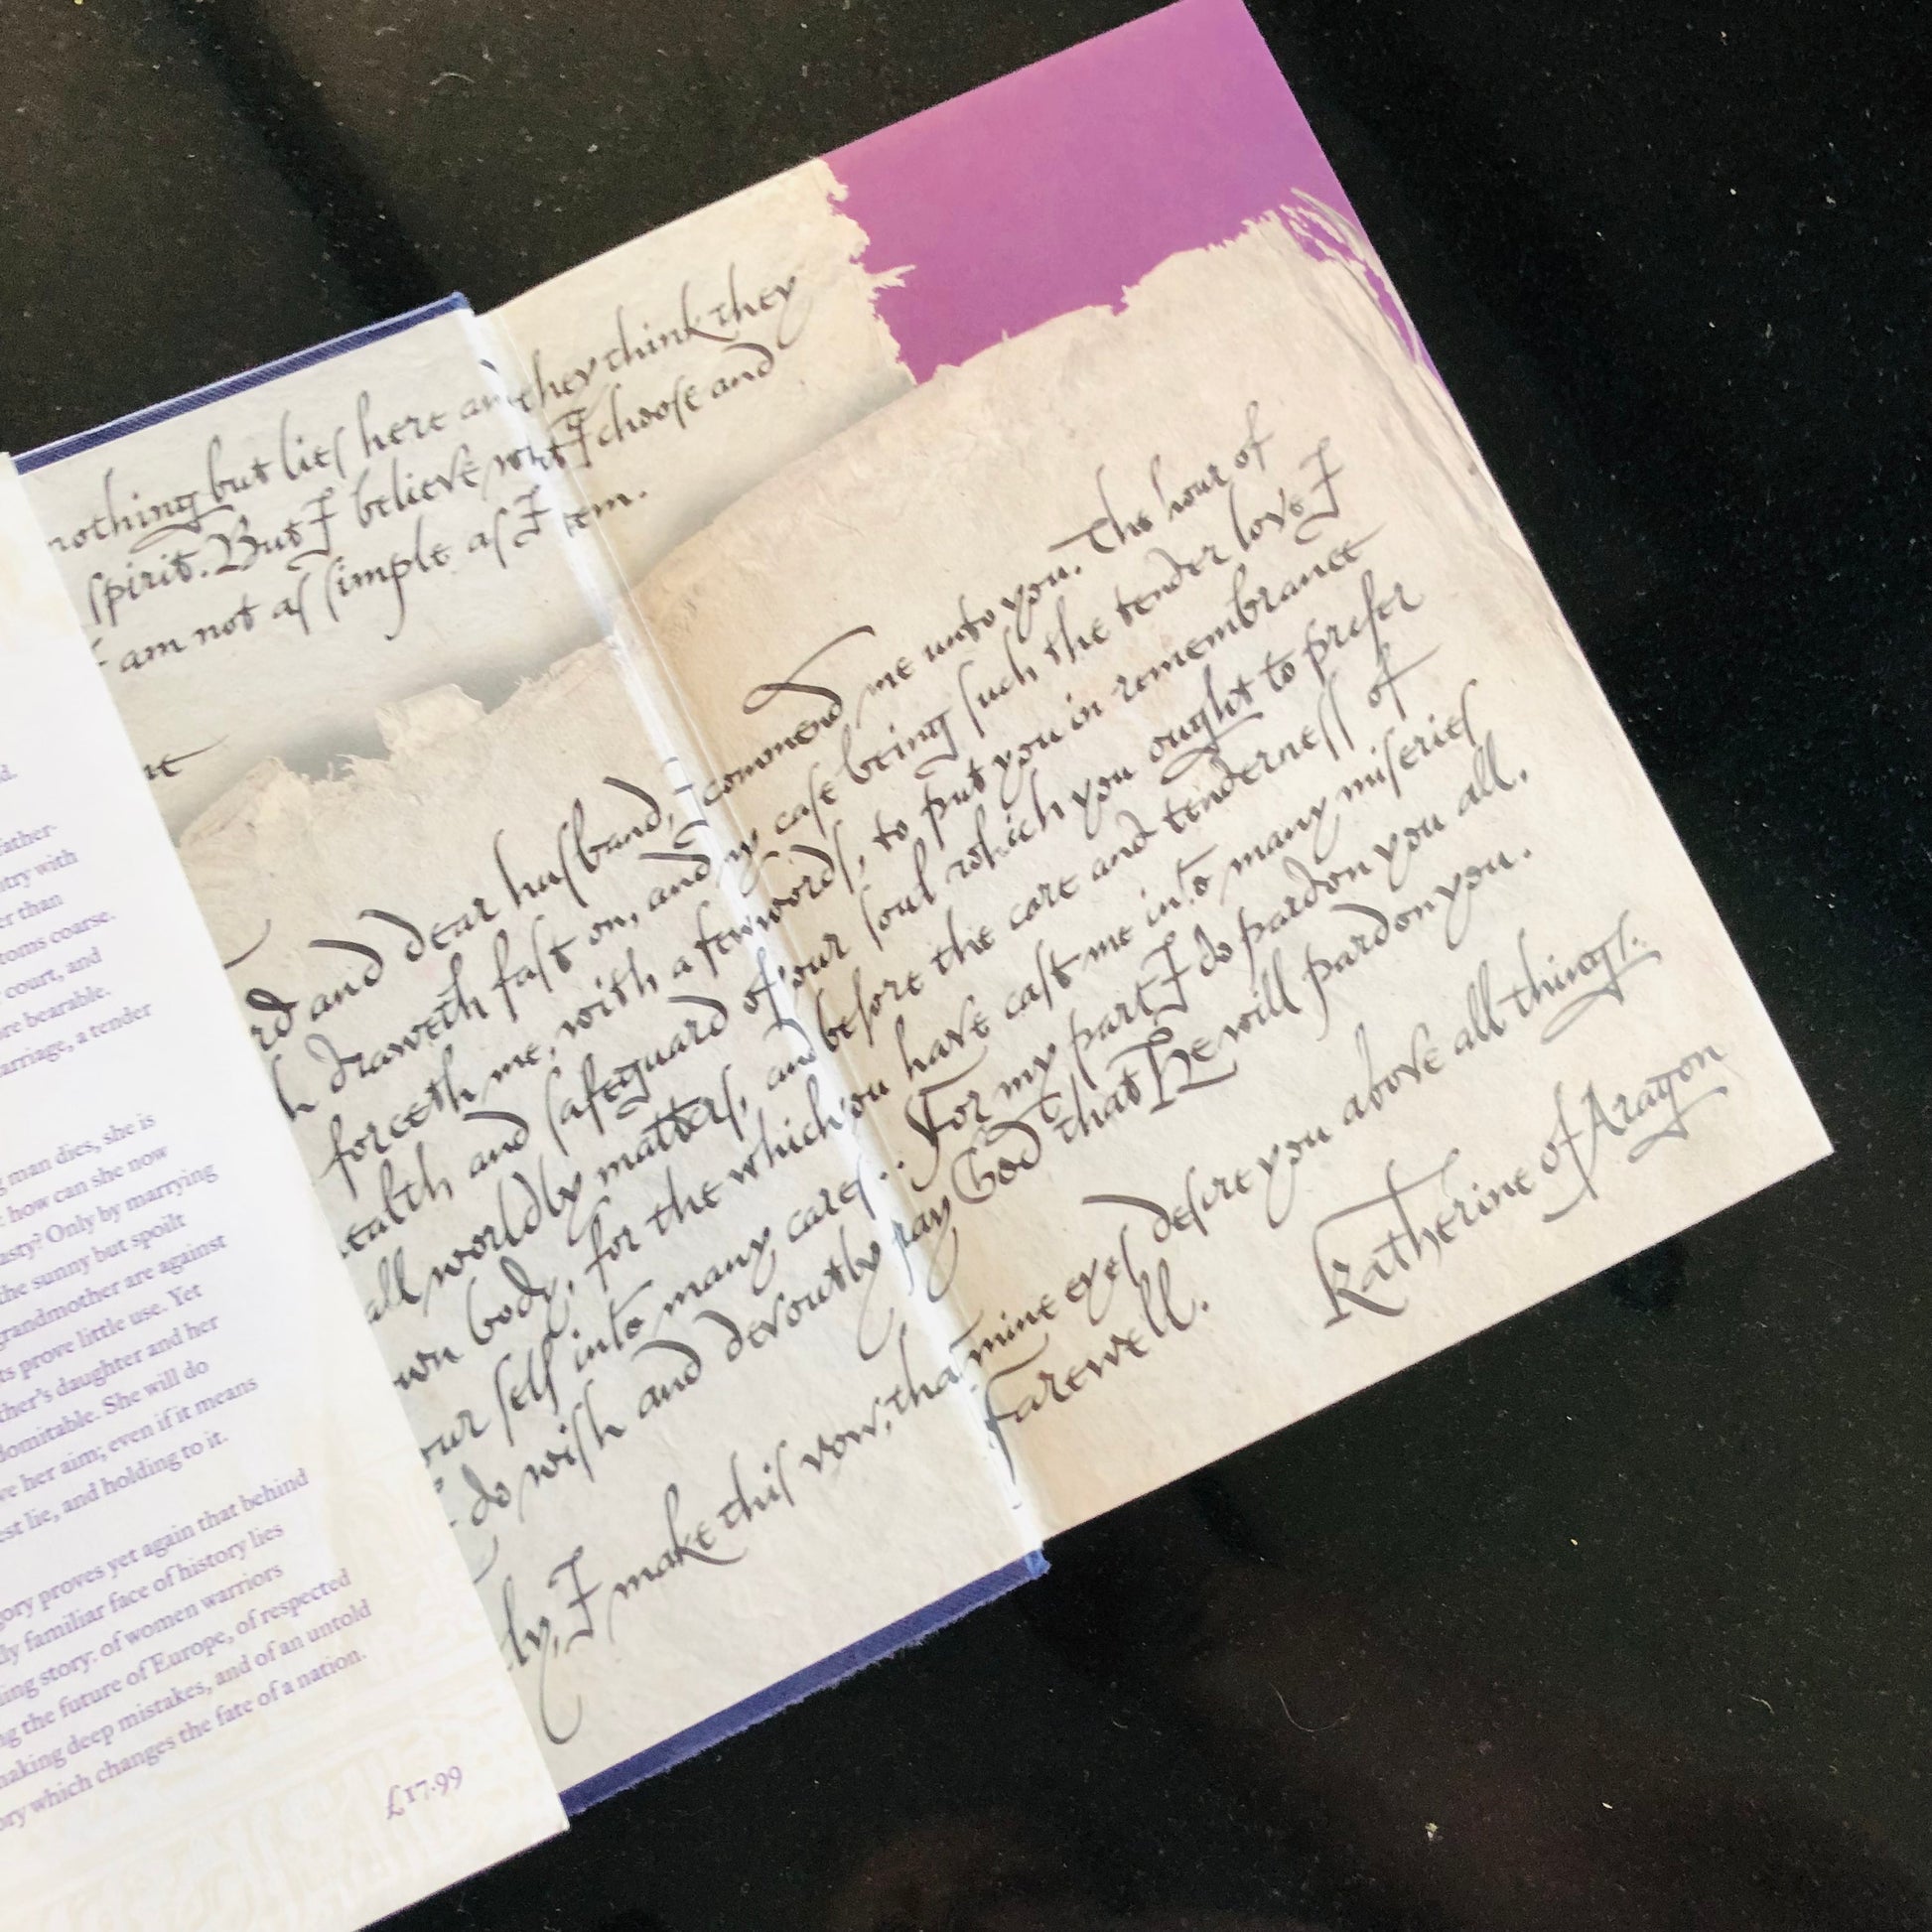 d.
father-
try with
er than
toms coarse.
court, and
re bearable.
arriage, a tender
g man dies, she is
how can she now
asty? Only by marrying
the sunny but spoilt
grandmother are against
ts prove little use. Yet
ther's daughter and her
domitable. She will do
ve her aim; even if it means
est lie, and holding to it.
gory proves yet again that behind
lly familiar face of history lies
ing story: of women warriors
ng the future of Europe, of respected
making deep mistakes, and of an untold
ory which changes the fate of a nation.
£17.99
nothing but lies here and they think they
spirit. But I believe what I choose and
am not as simple as I seem.
nt
rd and dear husband, I commend me unto you. The hour of
h draweth fast on, and my case being such the tender love I
forceth me, with a few words, to put you in remembrance
ealth and safeguard of your soul which you ought to prefer
all worldly matters, and before the care and tenderness of
wn body, for the which you have cast me into many miseries
our self into many cares.. For my part I do pardon you all,
I do wish and devoutly pray God that He will pardon you.
ly, I make this vow, that mine eyes desire you above all things.
Farewell.
Katherine of Aragon